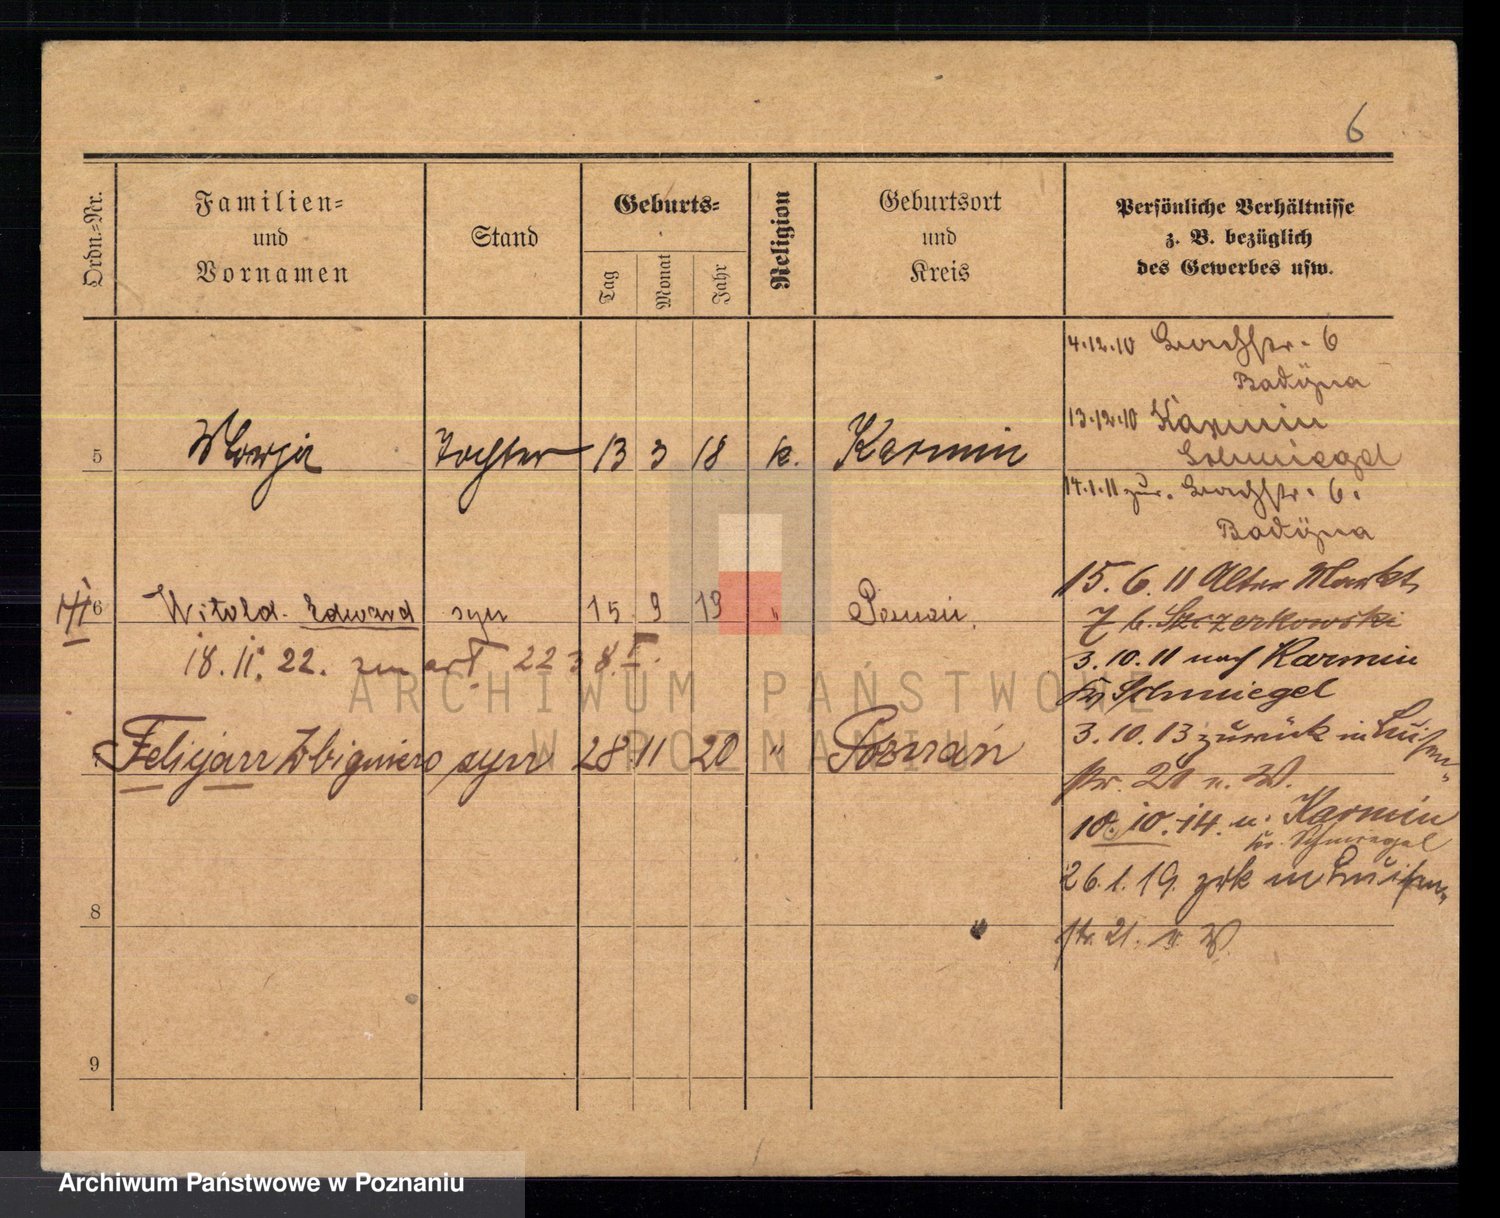 6
Ordn.-Nr.
Familien-
und
Vornamen
Stand
Geburts-
Tag
Monat
Jahr
Religion
Geburtsort
und
Kreis
Persönliche Verhältnisse
z. B. bezüglich
des Gewerbes usw.
4.12.10 6
13.12.10 Karmin
Schmiegel
5 Tochter 13 3 18 k. Karmin
14.1.11 zur. 6.
15. 6. 11 Alter Markt
6 Witold Edward syn 15 9 19 " Poznań.
7 b. Szczerkowski
18. 11. 22. zm art. 22
3.10.11 nach Karmin
Kr Schmiegel
3. 10. 13 zurück in Luisen-
Felicjan Zbigniew syn 28 11 20 " Poznań
str. 21 n. W.
10. 10. 14. n. Karmin
kr. Schmiegel
26. 1. 19. zrk in Luisen-
8
str. 21. n W.
9
ARCHIWUM PAŃSTWOWE
W POZNANIU
Archiwum Państwowe w Poznaniu